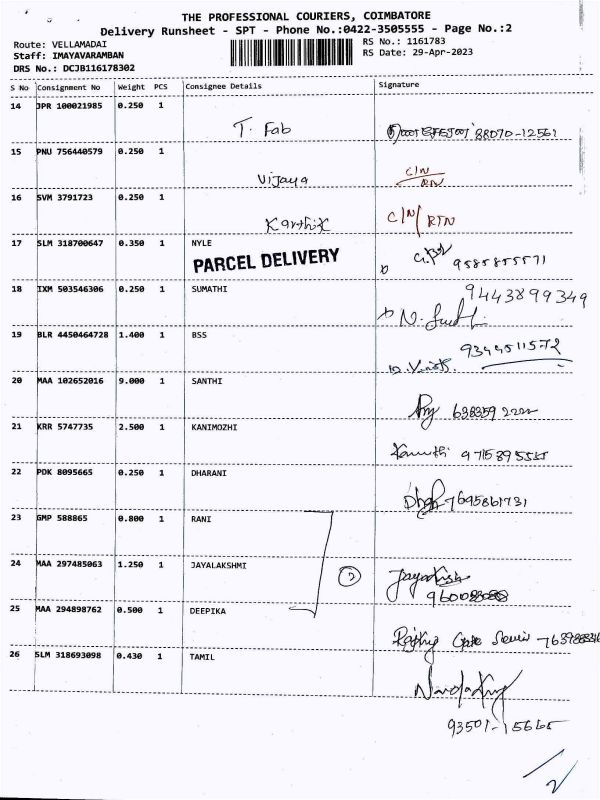 THE PROFESSIONAL COURIERS, COIMBATORE
Delivery Runsheet - SPT - Phone No.:0422-3505555 - Page No.:2
Route: VELLAMADAI RS No.: 1161783
Staff: IMAYAVARAMBAN RS Date: 29-Apr-2023
DRS No.: DCJB116178302
S No Consignment No Weight PCS Consignee Details Signature
14 JPR 100021985 0.250 1
T. Fab 88070-12561
15 PNU 756440579 0.250 1
Vijaya C/N RTN
16 SVM 3791723 0.250 1
Karthik C/N/ RTN
17 SLM 318700647 0.350 1 NYLE
PARCEL DELIVERY 9585855571
18 IXM 503546306 0.250 1 SUMATHI 9443899349
19 BLR 4450464728 1.400 1 BSS 9344511572
20 MAA 102652016 9.000 1 SANTHI
638359 2222
21 KRR 5747735 2.500 1 KANIMOZHI
22 PDK 8095665 0.250 1 DHARANI
7695861731
23 GMP 588865 0.800 1 RANI
24 MAA 297485063 1.250 1 JAYALAKSHMI
25 MAA 294898762 0.500 1 DEEPIKA
26 SLM 318693098 0.430 1 TAMIL
93501-15665